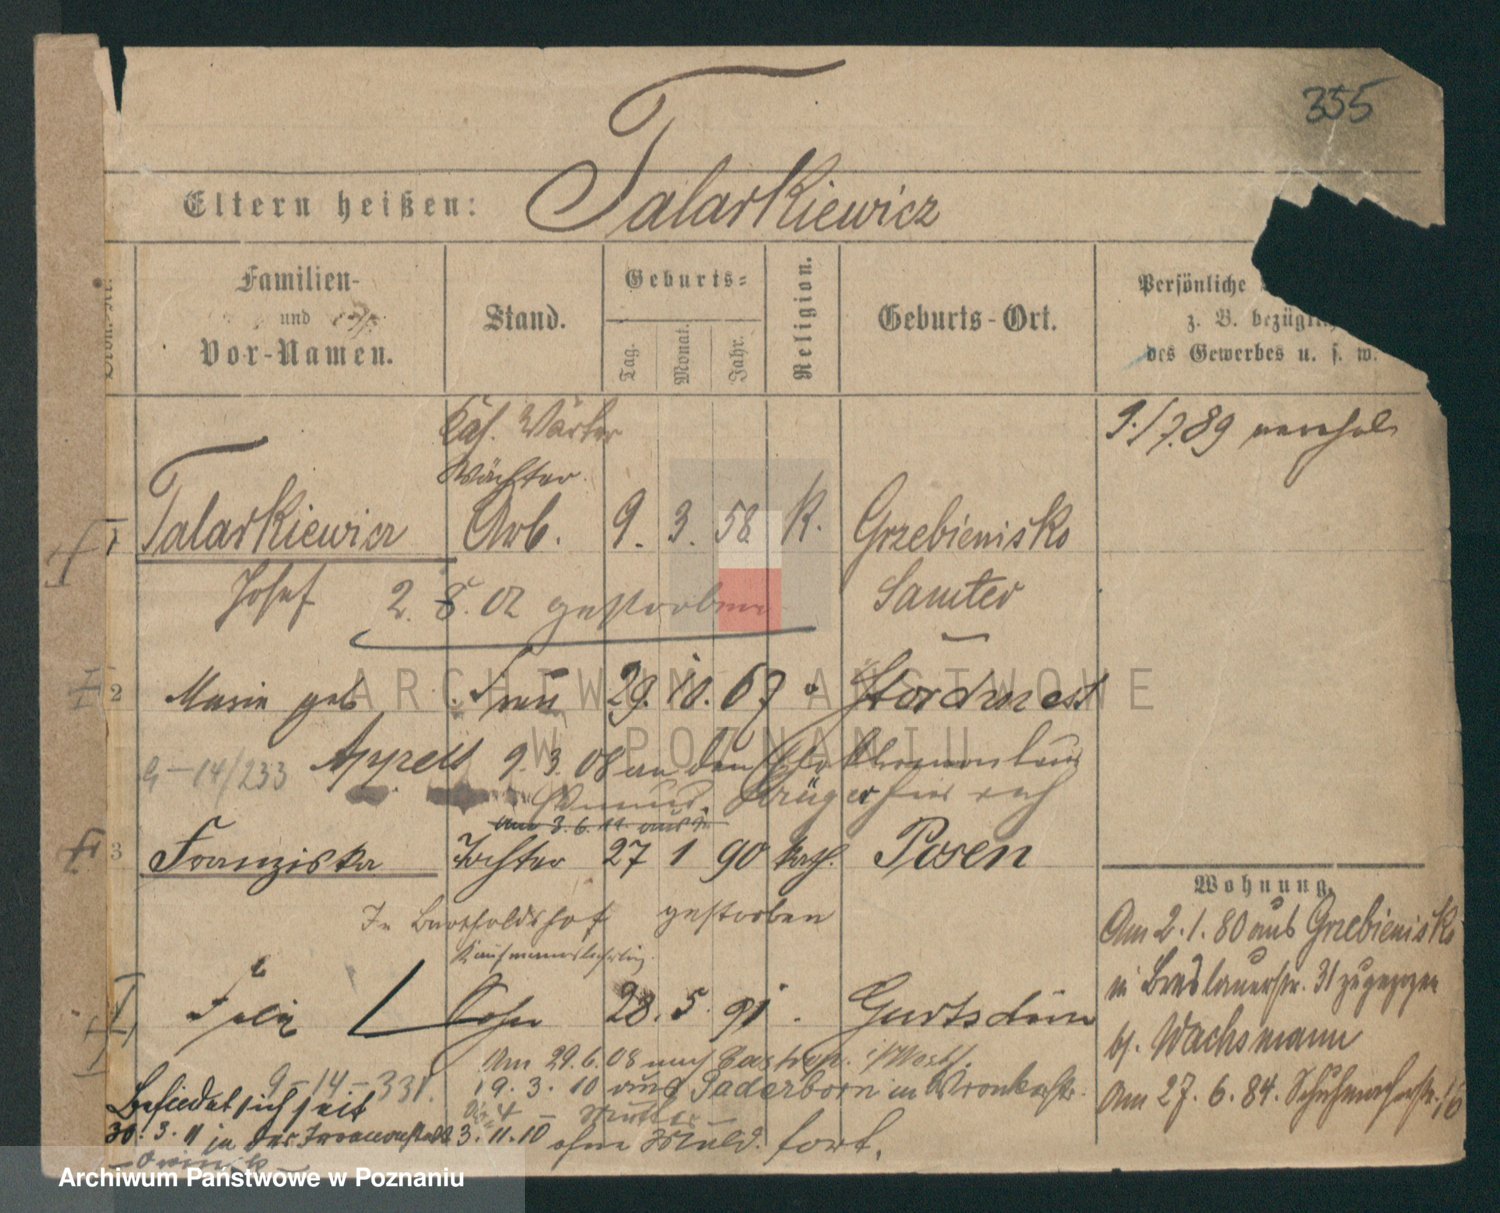 355
Eltern heißen: Talarkiewicz
Familien- und Vor-Namen.
Stand.
Geburts-
Tag. Monat. Jahr.
Religion.
Geburts-Ort.
Persönliche
z. B. bezüglich
des Gewerbes u. s. w.
9./7.89
Wächter.
1 Talarkiewicz Arb. 9. 3. 58 K. Grzebienisko
Josef 2. 8. 02 gestorben Samter
2 Marie geb. Frau 29. 10. 67 Stordnest
G-14/233 Appelt 9. 3. 08 an den
Krüger
Am 3. 6. 11.
3 Franziska Tochter 27 1 90 kath. Posen
In Bartholdshof gestorben
Kaufmannslehrling.
4 Felix Sohn 28. 5. 91. Gurtschin
Am 29.6.08 nach Castrop i/Westf.
9-14-331. 19. 3. 10 aus Paderborn in Wronkerstr.
Befindet sich seit
30. 3. 11 in der Irrenanstalt
Owinsk
3. 11. 10 ohne Meld. fort.
Wohnung.
Am 2. 1. 80 aus Grzebienisko
in Breslauerstr. 31 zugezogen
bf. Wachsmann
Am 27. 6. 84. Schuhmacherstr. 16
ARCHIWUM PAŃSTWOWE
W POZNANIU
Archiwum Państwowe w Poznaniu